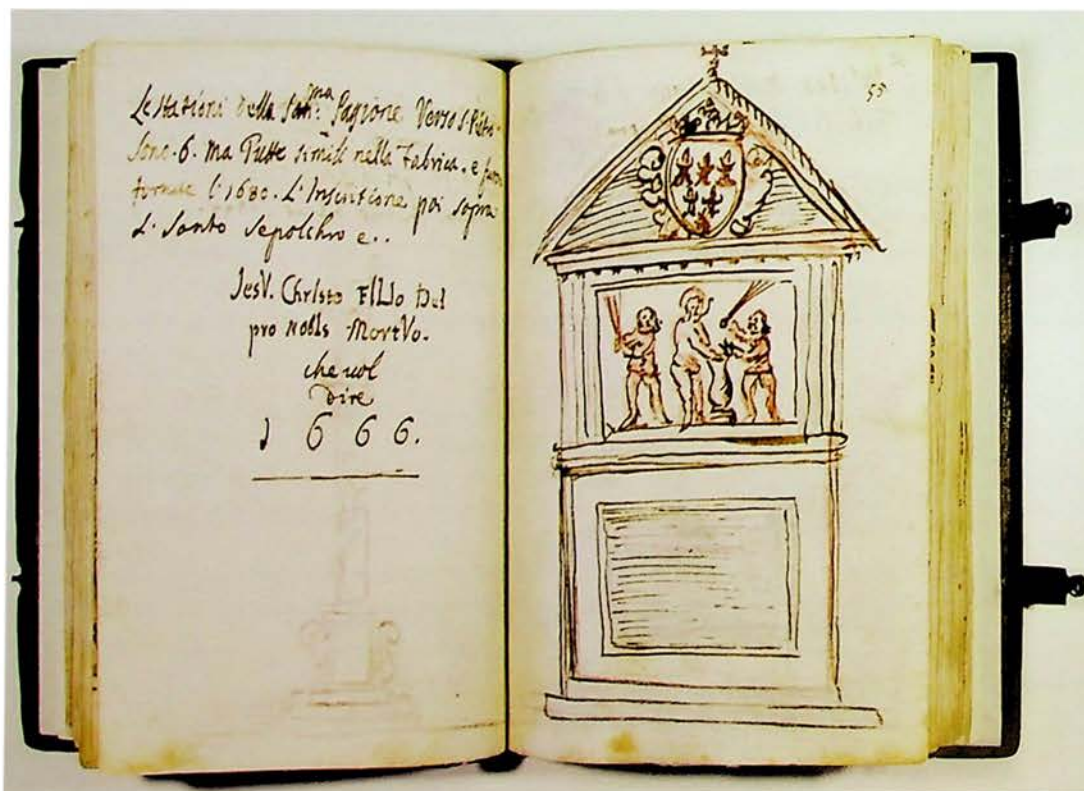 Le stationi della San.ma Passione Verso S. Pietro
sono .6. ma Tutte simili nella Fabrica . e furn
fornite l'1680. L'Inscritione poi sopra
L. Santo Sepolchro e..
JesV. ChrIsto FILIo DeI
pro nobIs MortVo.
che uol
Dire
1 6 6 6.
55